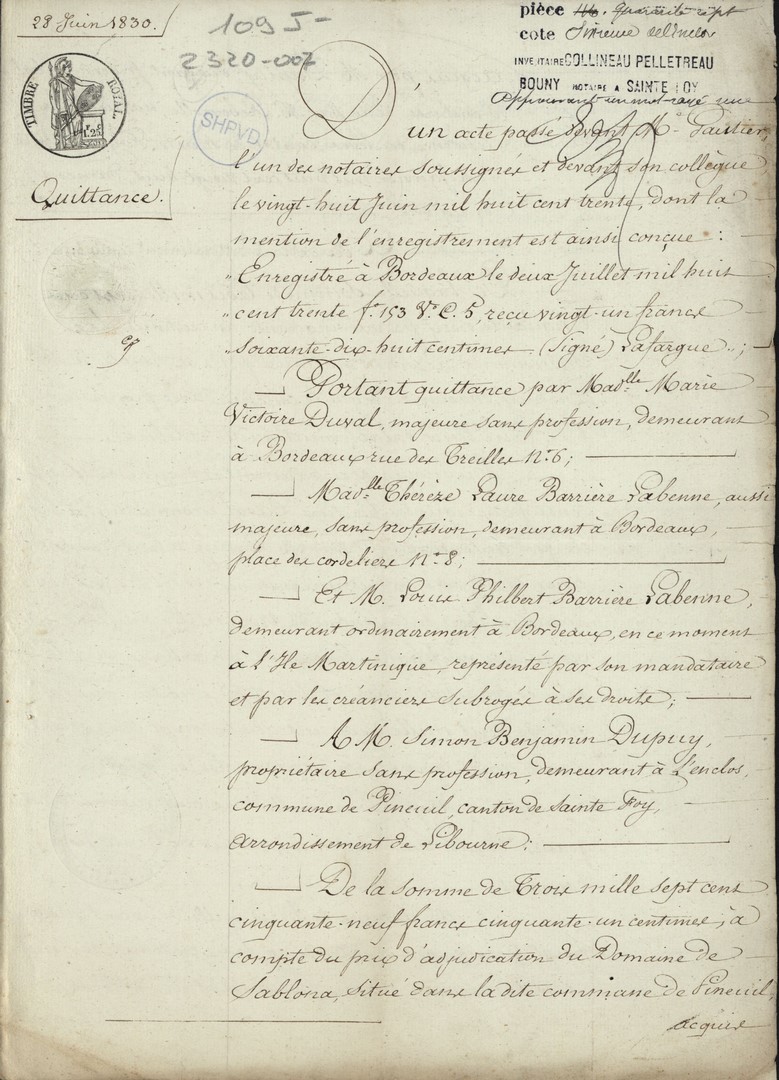 28 Juin 1830.
1095-
2320-007
pièce Quarante sept
cote
INVENTAIRE COLLINEAU PELLETREAU
BOUNY NOTAIRE A SAINTE FOY
approuvant un mot rayé
TIMBRE ROYAL.
1.25
SHPVD
Quittance.
D'un acte passé devant Me. Gautier,
l'un des notaires soussignés et devant son collègue
le vingt-huit Juin mil huit cent trente, dont la
mention de l'enregistrement est ainsi conçue :
„Enregistré à Bordeaux le deux Juillet mil huit
„cent trente fo. 153 Vo. C. 5, reçu vingt-un francs
„soixante-dix-huit centimes (Signé) Lafargue„;
Portant quittance par Madlle. Marie
Victoire Duval, majeure sans profession, demeurant
à Bordeaux rue des Treilles No. 6;
Madlle. Thérèze Laure Barrière Labenne, aussi
majeure, sans profession, demeurant à Bordeaux,
place des cordeliers No. 8;
Et M. Louis Philbert Barrière Labenne,
demeurant ordinairement à Bordeaux, en ce moment
à l'Ile Martinique, représenté par son mandataire
et par les créanciers subrogés à ses droits;
A M. Simon Benjamin Dupuy,
propriétaire sans profession, demeurant à L'enclos,
commune de Pineuil, canton de Sainte Foy,
arrondissement de Libourne:
De la somme de Trois mille sept cent
cinquante-neuf francs cinquante-un centimes, à
compte du prix d'adjudication du Domaine de
Sablona, situé dans la dite commune de Pineuil,
acquis